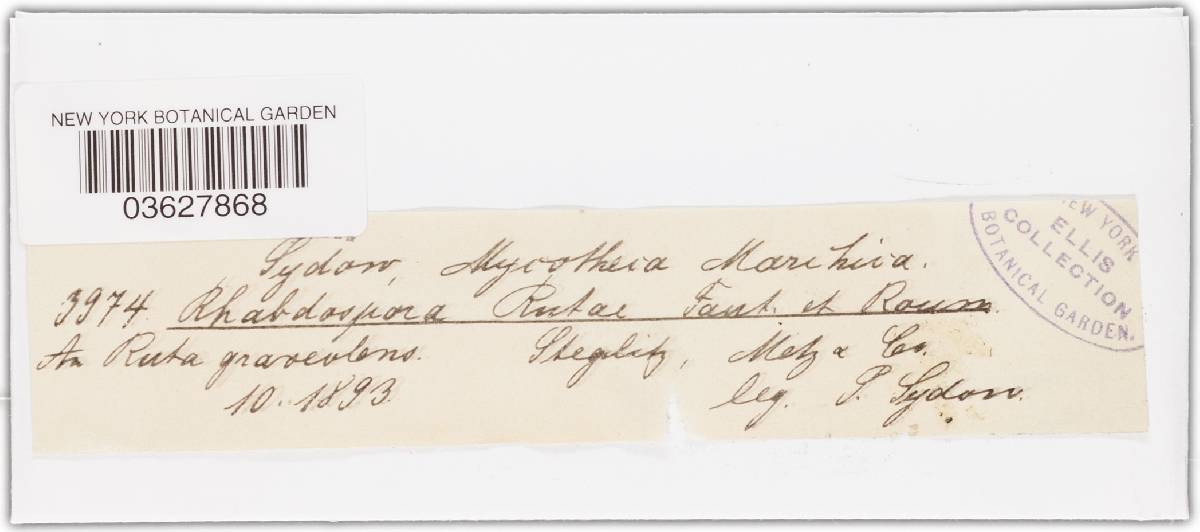 NEW YORK BOTANICAL GARDEN
03627868
Sydow, Mycotheca Marchica.
3974 Rhabdospora Rutae Faut. et Roum.
An Ruta graveolens. Steglitz, Metz & Co.
10. 1893. leg. P. Sydow.
NEW YORK
ELLIS
COLLECTION
BOTANICAL GARDEN.